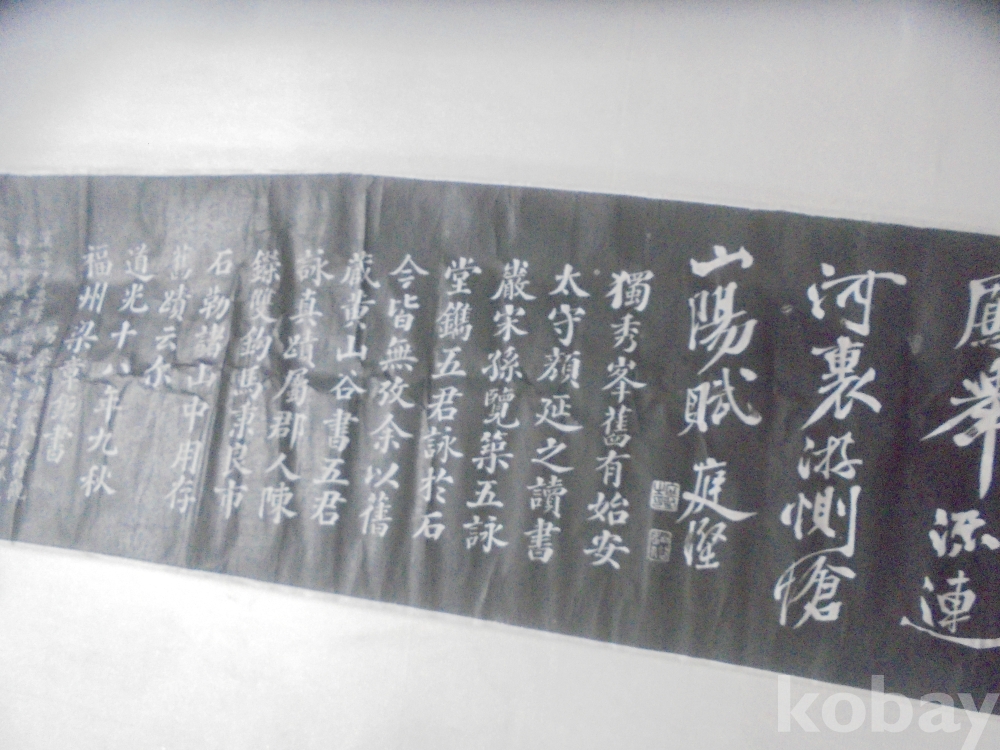 舉流連
河裏游惻愴
山陽賦 庭堅
獨秀峯舊有始安
太守顏延之讀書
巖宋孫覽築五詠
堂鐫五君詠於石
今皆無攷余以舊
藏黃山谷書五君
詠真蹟屬郡人陳
鑅雙鉤馬秉良市
石勒諸山中用存
舊蹟云尒
道光十八年九秋
福州梁章鉅書
kobay